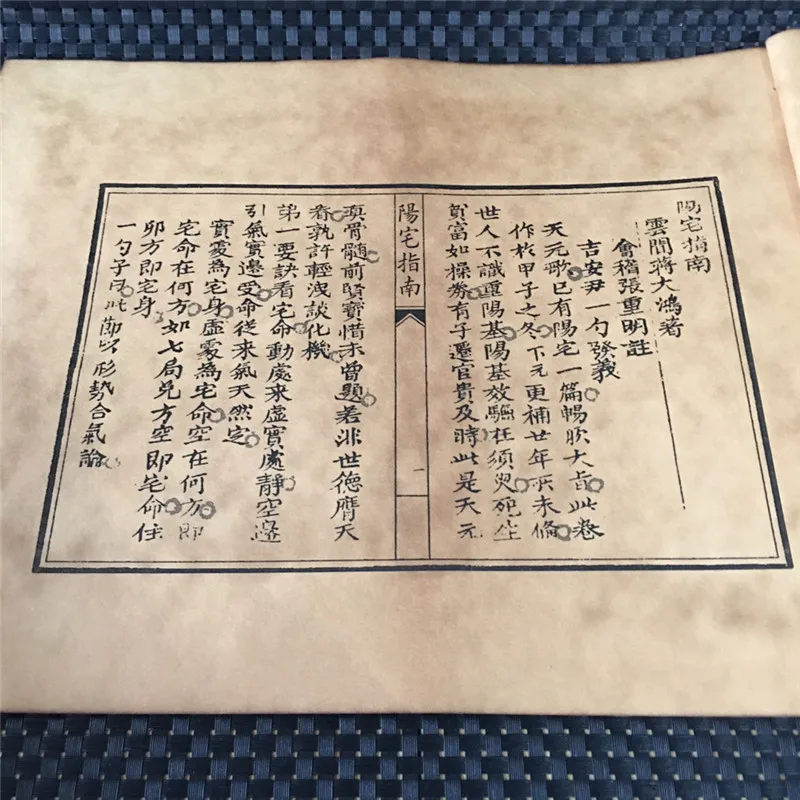 陽宅指南
雲間蔣大鴻著
會稽張重明註
吉安尹一勺發義
天元歌已有陽宅一篇暢厥大旨此卷
作於甲子之冬下元更補廿年所未備
世人不識重陽基陽基效驗在須臾死生
貧富如操券有子遷官貴及時此是天元
陽宅指南
一
真骨髓前賢寶惜未曾題若非世德膺天
眷孰許輕洩談化機
第一要訣看宅命動處來虛實處靜空邊
引氣實邊受命從來氣天然定
實處為宅身虛處為宅命空在何方即
宅命在何方如七局兌方空即宅命住
卯方即宅身
一勺子曰此節以形勢合氣論